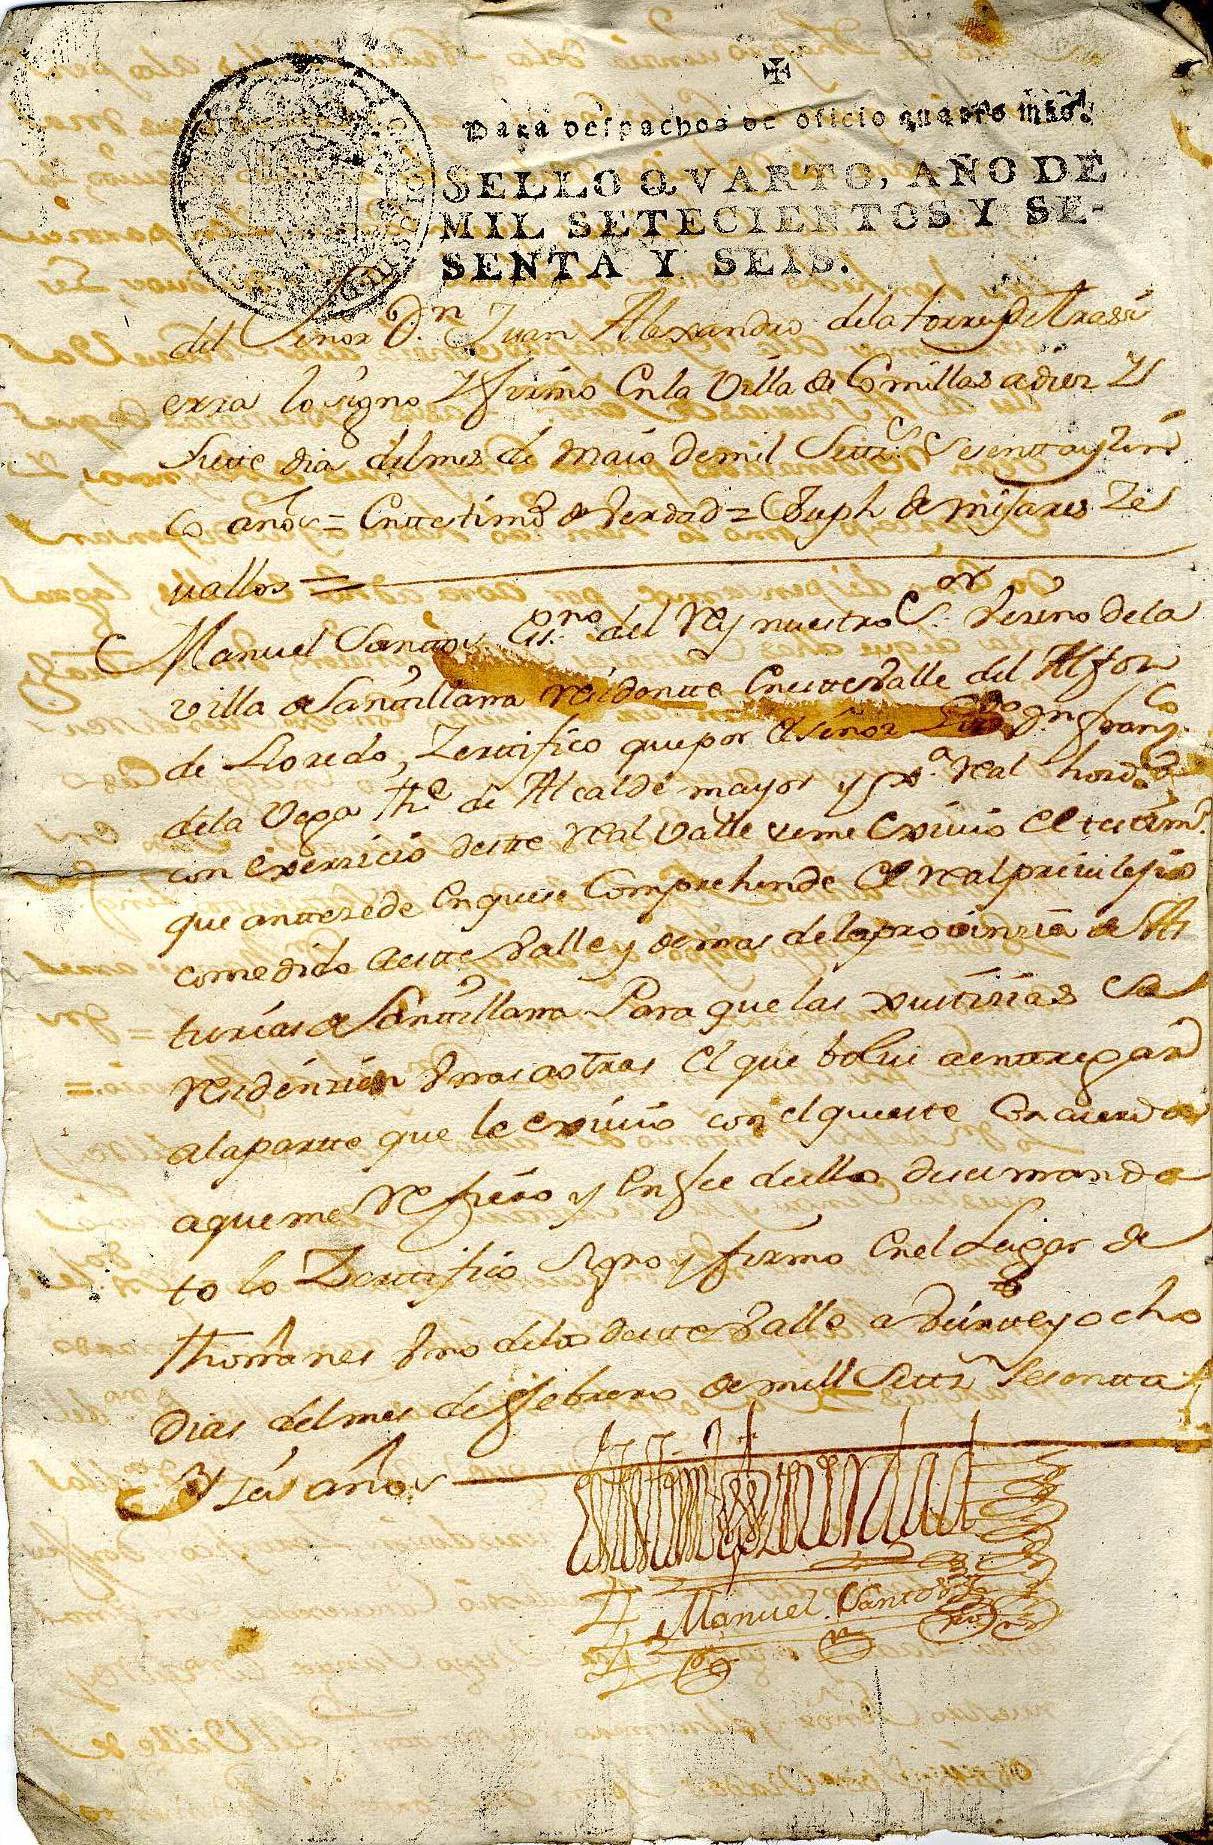 ✠
Para despachos de oficio quatro mrs.
SELLO QVARTO, AÑO DE
MIL SETECIENTOS Y SE-
SENTA Y SEIS.
del Señor Dn Juan Alexandro dela torre y
erra lo signo Y firmo En la Villa de Comillas a diez Y
siette dias del mes de maio de mil Settz.s Sesentta y Zin
co años = En ttestimo de Verdad = Juph de mijares Ze
uallos =
Manuel Santtos Essno del Rey nuestro Sor Vezino de la
villa de Santtillana residentte En estte Valle del Alfoz
de Lloredo, Zerttifico que por el señor Lizdo Dn Franco
de la Vega The de Alcalde mayor y Jxa real hordª
con exerzicio destte real Valle se me exiuio el testimo
que anttezede En que se Comprehende el real preuilejio
conzedido a estte Valle y demas de la prouinzia de As
turias de Santtillana Para que las xustizias se
residenzien Unas a otras el que bolui a enttregar
a la partte que le exiuio con el que estte Concuerda
a que me refiero y En fee de ello de su manda
to lo Zerttifico Signo y firmo En el Lugar de
Thoñanes Uno de los de estte Valle a Veintte y ocho
Dias del mes de febrero de mill Settzs Sesentta
Y seis años
En testimo de verdad
Manuel Santos